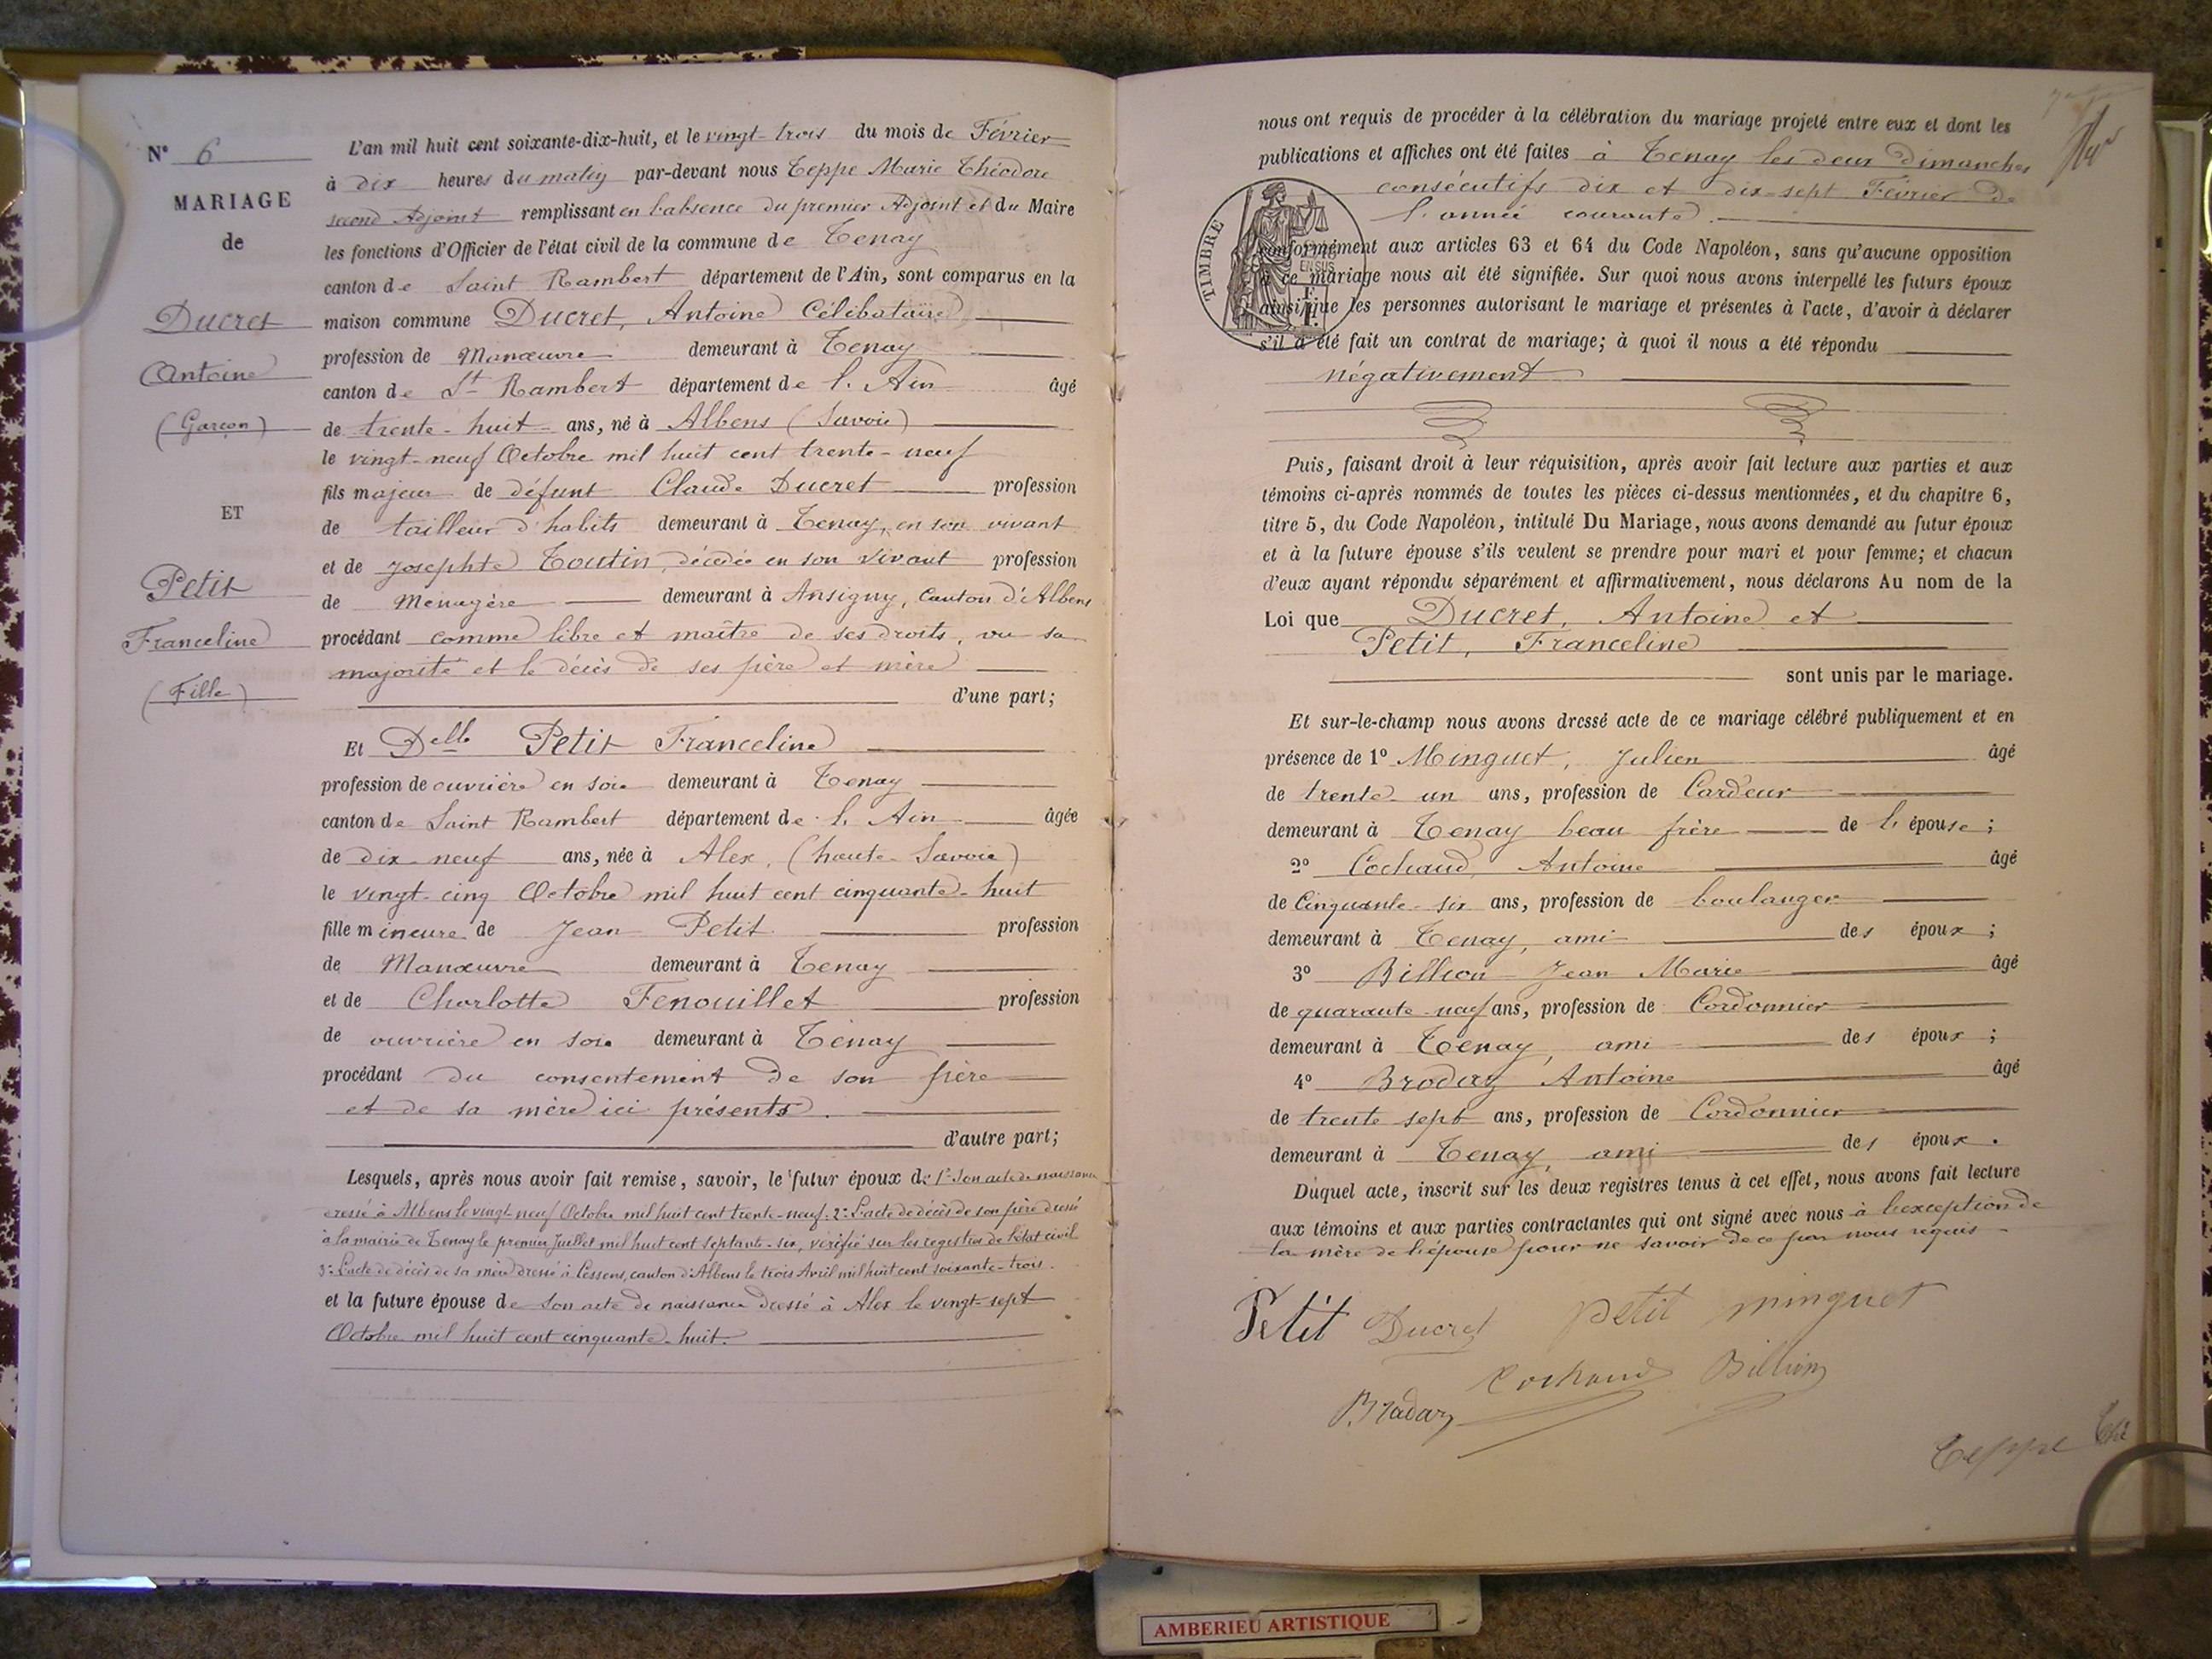 N° 6
MARIAGE
de
Ducret
Antoine
(Garçon)
ET
Petit
Franceline
(Fille)
L'an mil huit cent soixante-dix-huit, et le vingt-trois du mois de Février
à dix heures du matin par-devant nous Teppe Marie Théodore
second Adjoint remplissant en l'absence du premier Adjoint et du Maire
les fonctions d'Officier de l'état civil de la commune de Tenay
canton de Saint Rambert département de l'Ain, sont comparus en la
maison commune Ducret, Antoine Célibataire
profession de Manœuvre demeurant à Tenay
canton de St Rambert département de l'Ain âgé
de trente-huit ans, né à Albens (Savoie)
le vingt-neuf Octobre mil huit cent trente-neuf
fils majeur de défunt Claude Ducret profession
de tailleur d'habits demeurant à Tenay, en son vivant
et de Josephte Toutin, décédée en son vivant profession
de Ménagère demeurant à Ansigny, Canton d'Albens
procédant comme libre et maître de ses droits, vu sa
majorité et le décès de ses père et mère
d'une part;
Et Delle Petit Franceline
profession de ouvrière en soie demeurant à Tenay
canton de Saint Rambert département de l'Ain âgée
de dix-neuf ans, née à Alex, (haute-Savoie)
le vingt-cinq Octobre mil huit cent cinquante-huit
fille mineure de Jean Petit profession
de Manœuvre demeurant à Tenay
et de Charlotte Fenouillet profession
de ouvrière en soie demeurant à Tenay
procédant du consentement de son père
et de sa mère ici présents.
d'autre part;
Lesquels, après nous avoir fait remise, savoir, le futur époux de 1° Son acte de naissance
dressé à Albens le vingt-neuf Octobre mil huit cent trente-neuf. 2° L'acte de décès de son père dressé
à la mairie de Tenay le premier Juillet mil huit cent septante-six, vérifié sur les registres de l'état civil
3° L'acte de décès de sa mère dressé à Cessens, canton d'Albens le trois Avril mil huit cent soixante-trois.
et la future épouse de Son acte de naissance dressé à Alex le vingt-sept
Octobre mil huit cent cinquante-huit.
nous ont requis de procéder à la célébration du mariage projeté entre eux et dont les
publications et affiches ont été faites à Tenay les deux Dimanches
consécutifs dix et dix-sept Février de
l'année courante.
TIMBRE
conformément aux articles 63 et 64 du Code Napoléon, sans qu'aucune opposition
à ce mariage nous ait été signifiée. Sur quoi nous avons interpellé les futurs époux
ainsi que les personnes autorisant le mariage et présentes à l'acte, d'avoir à déclarer
s'il a été fait un contrat de mariage; à quoi il nous a été répondu
négativement
Puis, faisant droit à leur réquisition, après avoir fait lecture aux parties et aux
témoins ci-après nommés de toutes les pièces ci-dessus mentionnées, et du chapitre 6,
titre 5, du Code Napoléon, intitulé Du Mariage, nous avons demandé au futur époux
et à la future épouse s'ils veulent se prendre pour mari et pour femme; et chacun
d'eux ayant répondu séparément et affirmativement, nous déclarons Au nom de la
Loi que Ducret, Antoine et
Petit, Franceline
sont unis par le mariage.
Et sur-le-champ nous avons dressé acte de ce mariage célébré publiquement et en
présence de 1° Minguet, Julien âgé
de trente-un ans, profession de Cardeur
demeurant à Tenay beau frère de l'épouse;
2° Cochaud, Antoine âgé
de Cinquante-six ans, profession de boulanger
demeurant à Tenay, ami des époux;
3° Billion Jean Marie âgé
de quarante-neuf ans, profession de Cordonnier
demeurant à Tenay, ami des époux;
4° Broday Antoine âgé
de trente sept ans, profession de Cordonnier
demeurant à Tenay, ami des époux.
Duquel acte, inscrit sur les deux registres tenus à cet effet, nous avons fait lecture
aux témoins et aux parties contractantes qui ont signé avec nous à l'exception de
la mère de l'épouse pour ne savoir de ce par nous requis
Petit Ducret petit minguet
Cochaud Billion
Teppe
AMBERIEU ARTISTIQUE